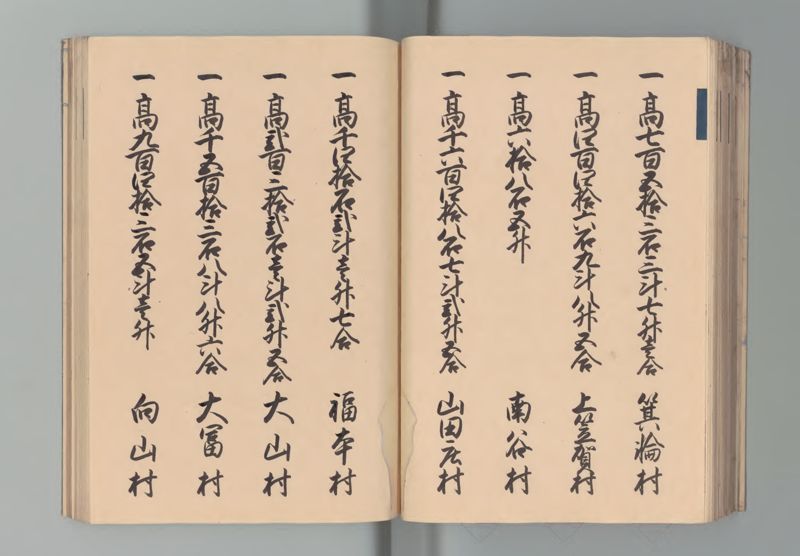 一 高七百五拾三石三斗七升壱合 箕輪村
一 高四百四拾六石九斗八升五合 上笠賀村
一 高六拾八石五升 南谷村
一 高千六百四拾八石七斗弐升五合 山田庄村
一 高千四拾石弐斗壱升七合 福本村
一 高弐百三拾弐石壱斗弐升五合 大山村
一 高千五百拾三石八斗八升六合 大冨村
一 高九百四拾三石五斗壱升 向山村